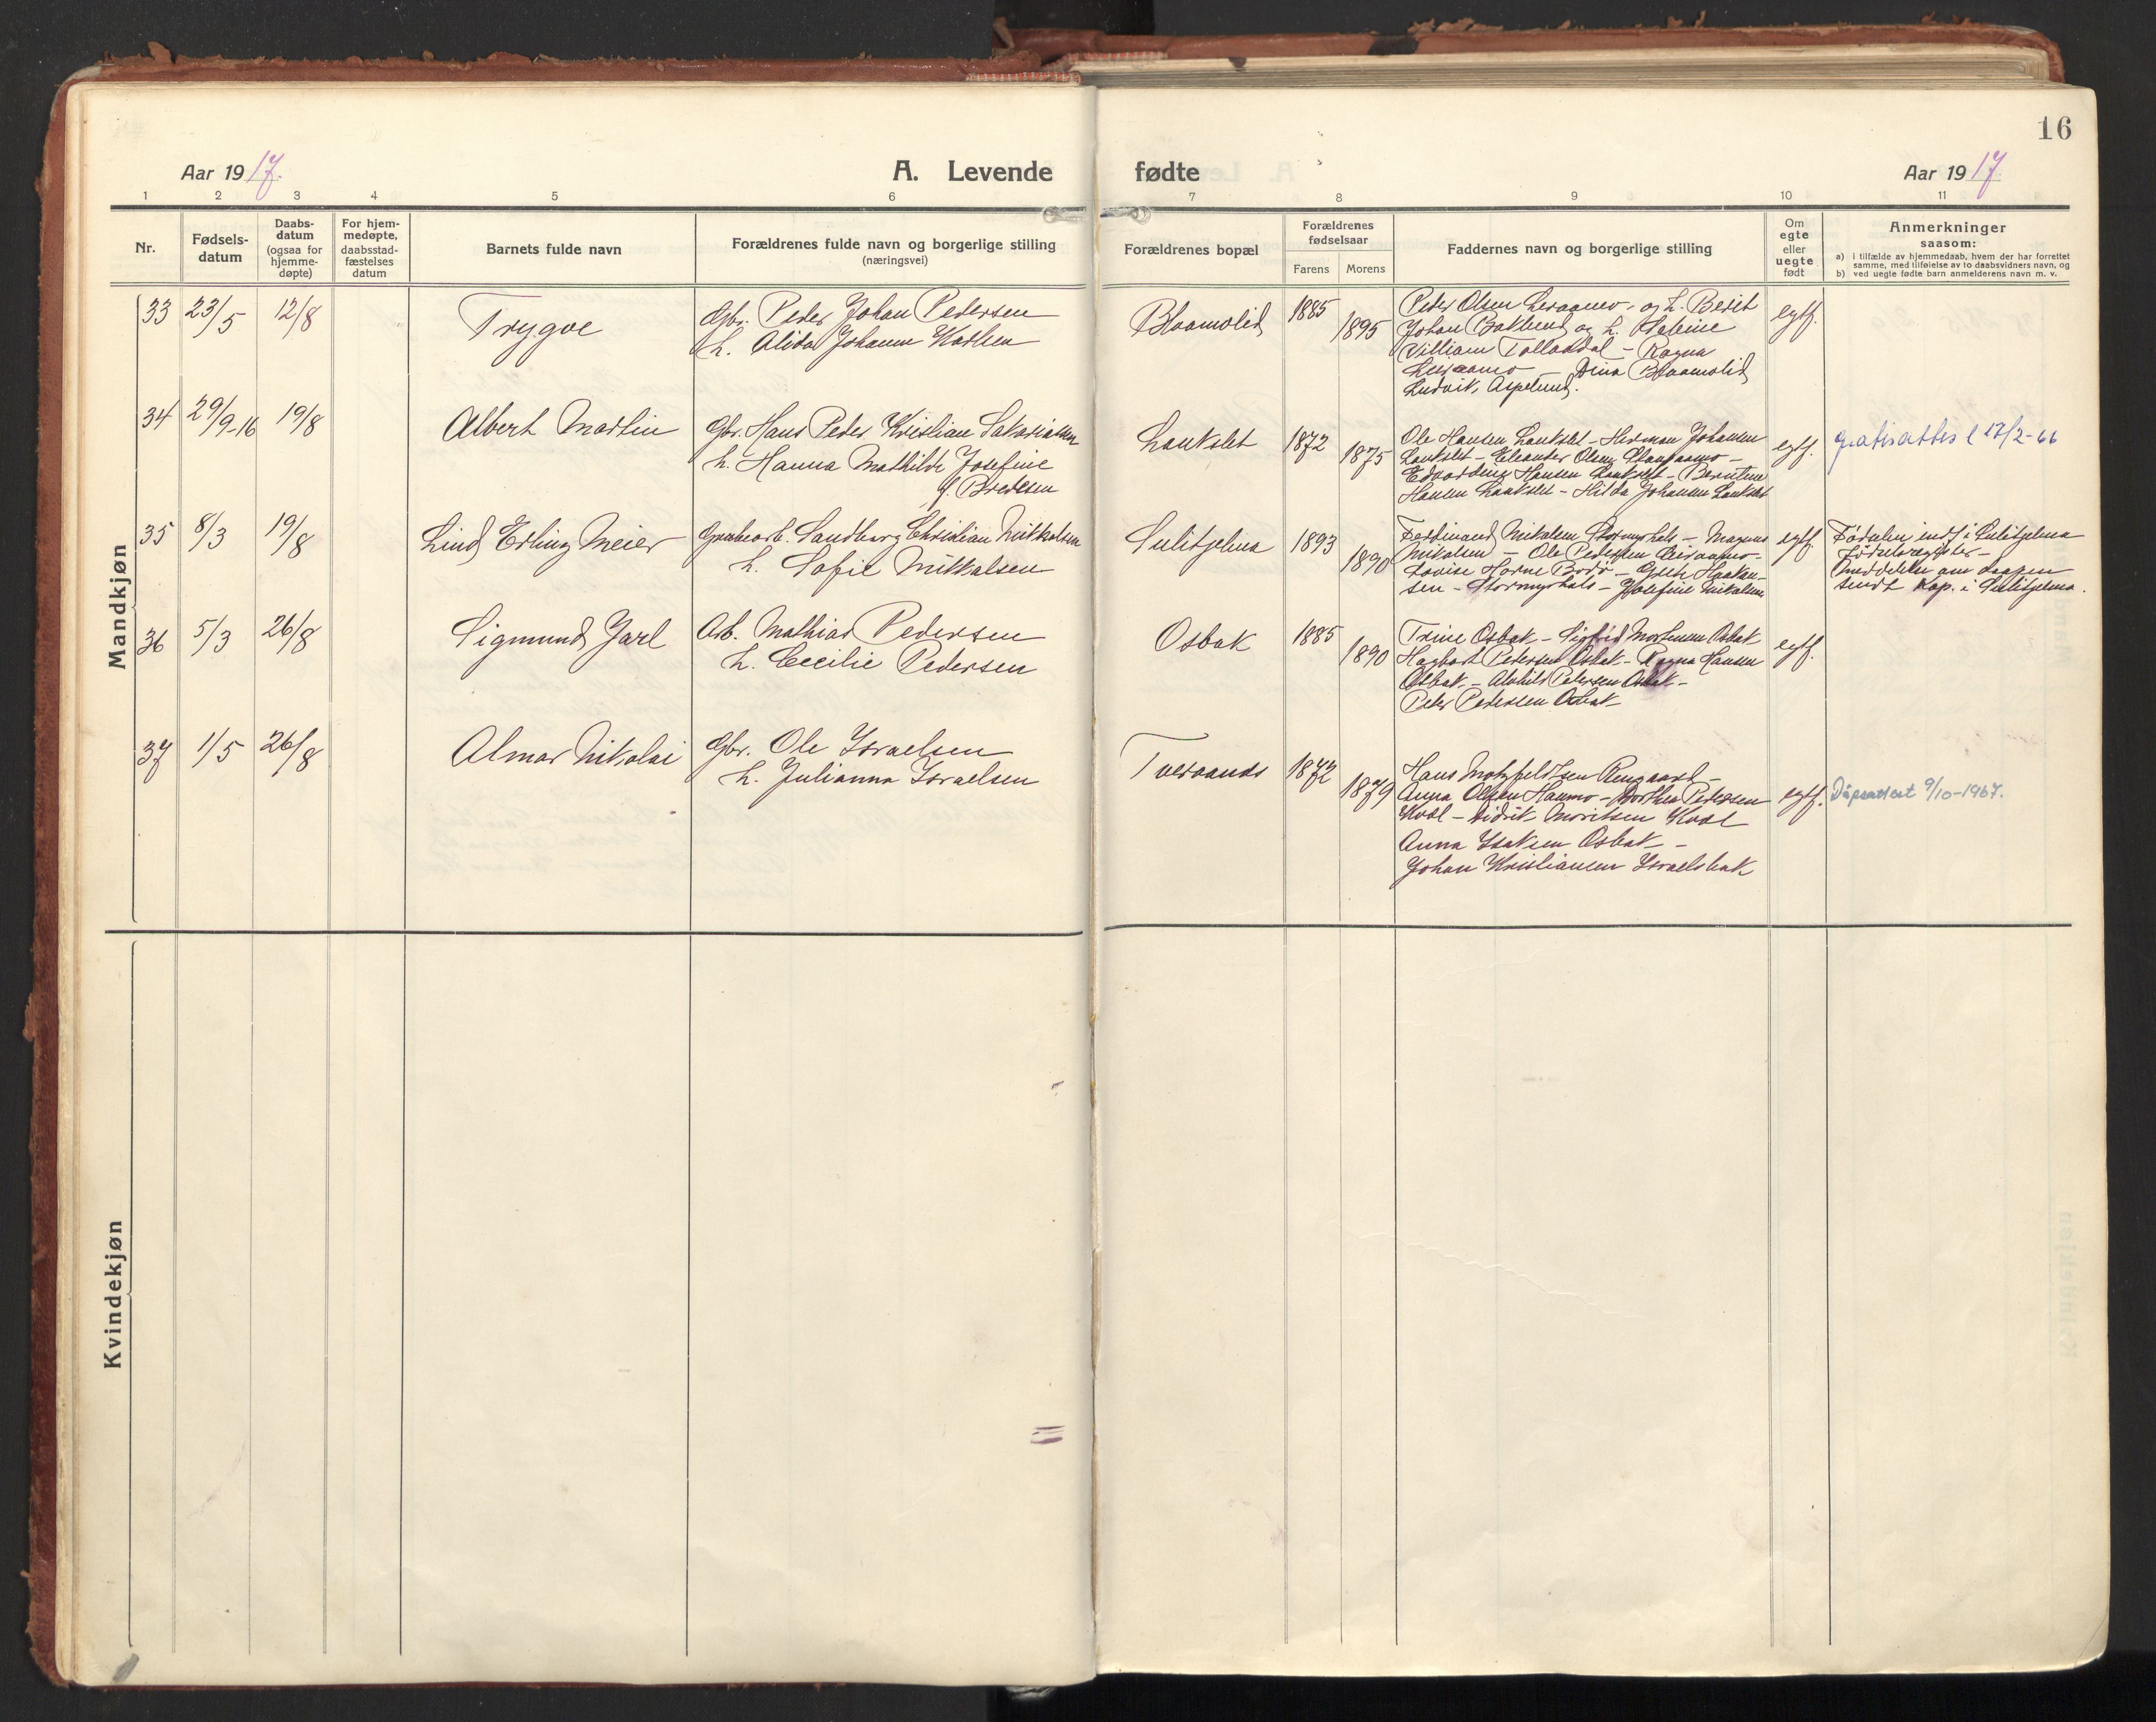 16
Aar 1917.
A. Levende fødte
Aar 1917.
1 2 3 4 5 6 7 8 9 10 11
Nr.
Fødsels-
datum
Daabs-
datum
(ogsaa for
hjemme-
døpte)
For hjem-
medøpte,
daabsstad-
fæstelses
datum
Barnets fulde navn
Forældrenes fulde navn og borgerlige stilling
(næringsvei)
Forældrenes bopæl
Forældrenes
fødselsaar
Farens Morens
Faddernes navn og borgerlige stilling
Om
egte
eller
uegte
født
Anmerkninger
saasom:
a) i tilfælde av hjemmedaab, hvem der har forrettet
samme, med tilføielse av to daabsvidners navn, og
b) ved uegte fødte barn anmelderens navn m. v.
Mandkjøn
33 23/5 12/8
Trygve
Gbr. Peder Johan Pedersen
h. Alida Johanne
Blaamolid
1885
1895
Peder Olsen og h. Berit
Johan og h.
Villiam Tollaadal - Ragna
- Dina Blaamolid
Ludvik Aspelund.
egtf.
34 29/9-16 19/8
Albert Martin
Gbr. Hans Peder Kristian Sakariassen
h. Hanna Mathilde Josefine
f. Bredesen
Laukslet
1872
1875
Ole Hansen Laukslet - Herman Johansen
Laukslet - Olsen
Hansen Laukslet -
Hansen Laukslet - Hilda Johansen Laukslet
egtf.
gratisattest 17/2-66
35 8/3 19/8
Lind Erling Meier
Grubearb. Sandberg Christian Mikkalsen
h. Sofie Mikkalsen
Sulitjelma
1893
1890
Ferdinand Mikalsen Stormyrhals - Magnus
Mikalsen - Ole Pedersen
Lovise Horne Bodø - Haakon-
sen - Stormyrhals - Josefine Mikalsen
egtf.
Fødselen indf. i Sulitjelma
fødselsregister -
Meddelelse om daapen
sendt Kap. i Sulitjelma.
36 5/3 26/8
Sigmund Jarl
Arb. Mathias Pedersen
h. Cecilie Pedersen
Osbak
1885
1890
Trine Osbak - Sigfrid Mortensen Osbak
Hagbart Pedersen Osbak - Ragna Hansen
Osbak - Alvhild Petersen Osbak -
Peder Pedersen Osbak
egtf.
37 1/5 26/8
Almar Nikolai
Gbr. Ole Israelsen
h. Julianna Israelsen
Tveraands
1872
1879
Hans Motzfeldtsen Rengaard -
Anna Olsen Haamo - Dorthea Pedersen
Kval - Didrik Moritsen Kval
Anna Isaksen Osbak -
Johan Kristiansen Israelsbak
egtf.
Dåpsattest 9/10-1967.
Kvindekjøn